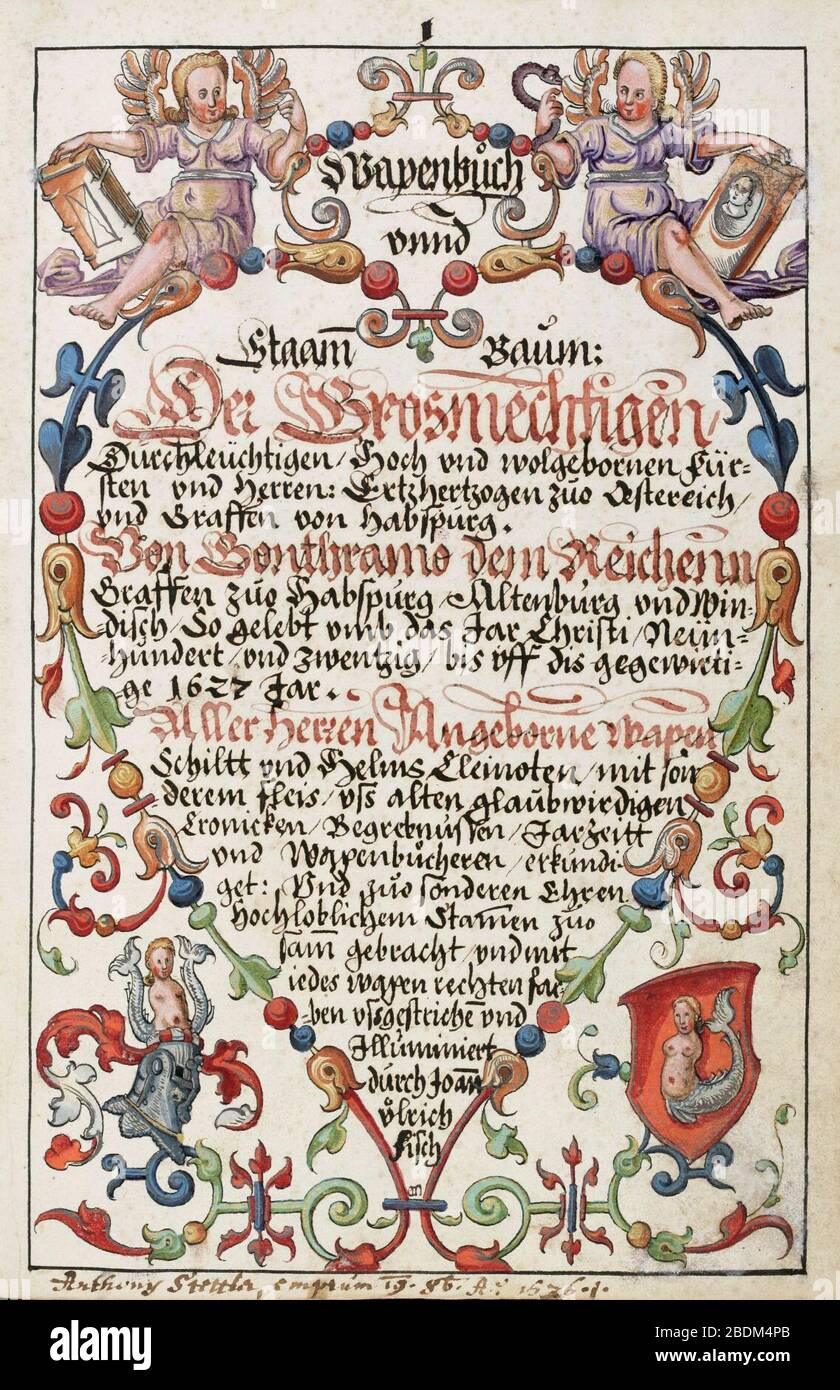 1
Wapenbůch
vnnd
Staam̄ Baum:
Der Grosmechtigen/
Durchleüchtigen/ Hoch vnd wolgebornen Für-
sten vnd Herren: Ertzhertzogen zuo Oestereich/
vnd Graffen von Habspurg.
Von Gonthramo dem Reichenn
Graffen zuo Habspurg/ Altenburg vnd Win-
disch/ So gelebt vmb das Jar Christi/ Neün-
hundert/ vnd zwentzig/ bis vff dis gegewirti-
ge 1627 Jar.
Aller Herren Angeborne wapen
Schiltt vnd Helms Cleinoten/ mit son
derem fleis/ vss alten glaubwirdigen
Cronicken/ Begrebnussen/ Jarzeitt
vnd Wapenbůcheren/ erkündi-
get: Vnd zuo sonderen Ehren
Hochloblichem Stam̄en zuo
sam̄ gebracht/ vnd mit
iedes wapen rechten far-
ben vssgestrichen vnd
Jlluminiert
durch Joan̄
vͦlrich
fisch
Anthony Stettler, emptum 19. 8b. A: 1626.
alamy
Image ID: 2BDM4PB
www.alamy.com